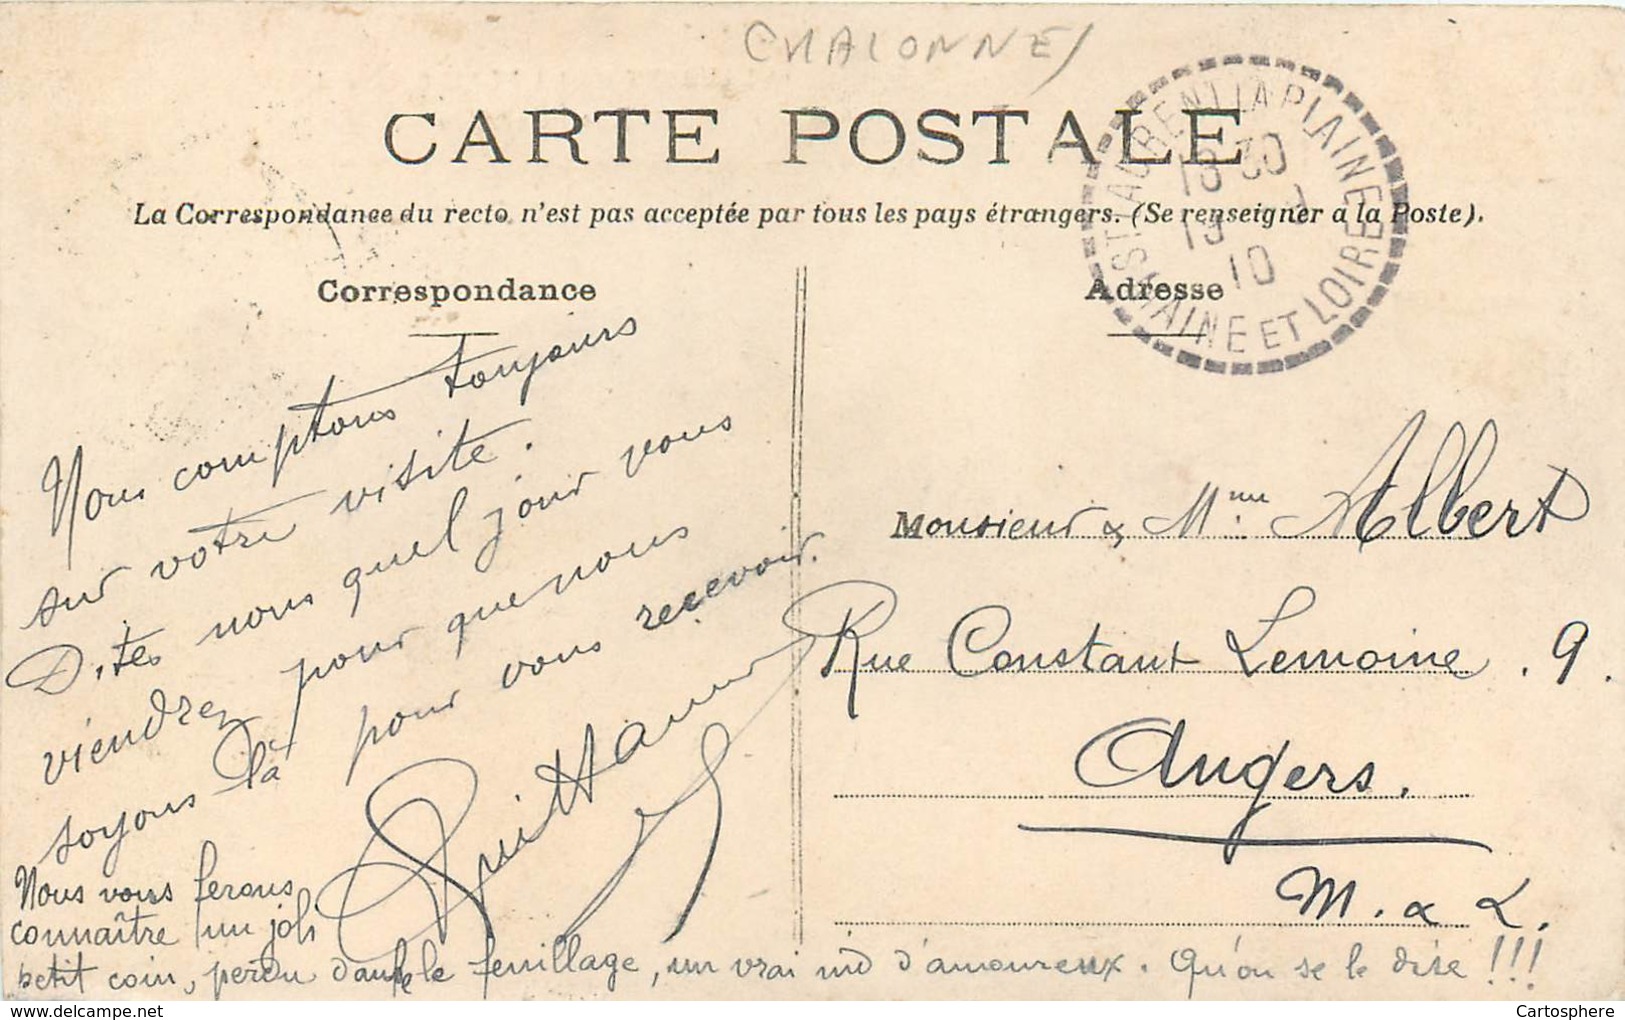 CHALONNES
CARTE POSTALE
La Correspondance du recto n'est pas acceptée par tous les pays étrangers. (Se renseigner à la Poste).
ST LAURENT LA PLAINE
18 30
10
MAINE ET LOIRE
Correspondance
Nous comptons toujours
sur votre visite.
Dites nous quel jour vous
viendrez pour que nous
soyons là pour vous recevoir.
Nous vous ferons
connaître un joli
petit coin, perdu dans le feuillage, un vrai nid d'amoureux. Qu'on se le dise !!!
Adresse
Monsieur & Mme Albert
Rue Constant Lemoine. 9.
Angers.
M. & L.
Cartosphere